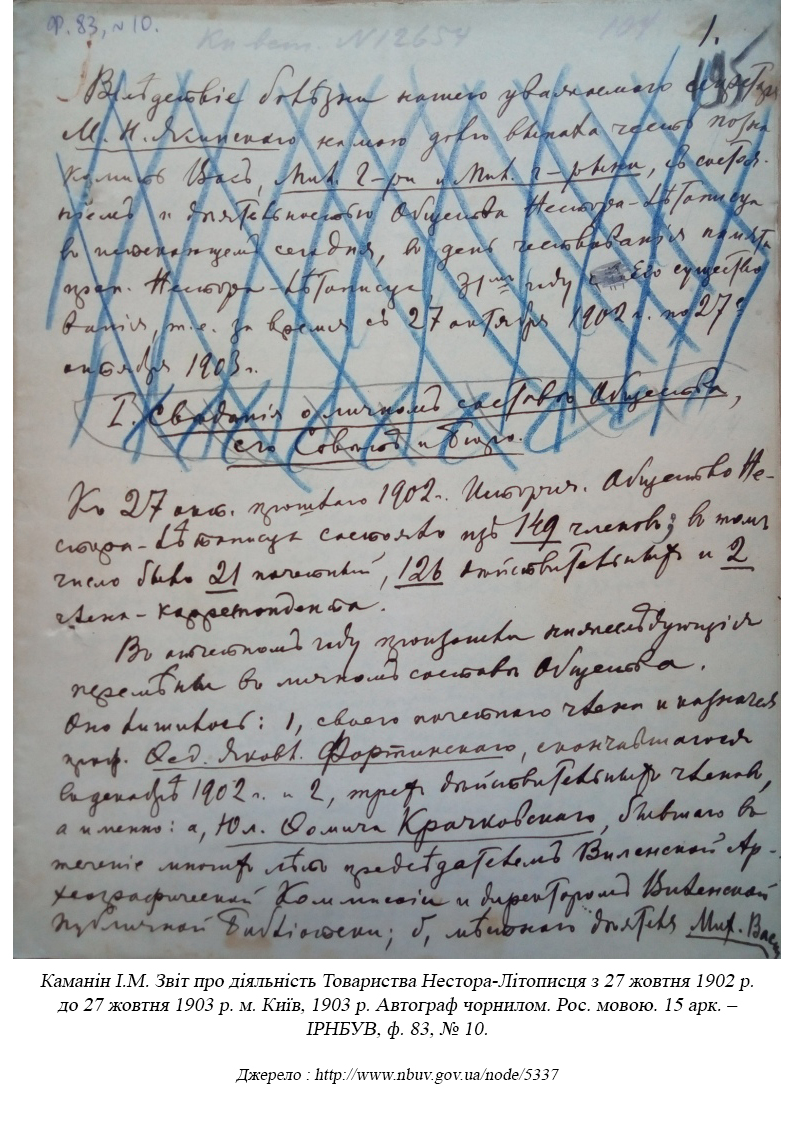 Ф. 83, № 10.
Кн вст. N 12654
104
1.
195
Вслѣдствіе болѣзни нашего уважаемаго секретаря
М. Н. Ясинскаго на мою долю выпала честь позна
комить Васъ, Мил. Г-ри и Мил. г-рыни, съ состоя-
ніемъ и дѣятельностью Общества Нестора-Лѣтописца
въ истекающемъ сегодня, въ день чествованія памяти
преп. Нестора-Лѣтописца, году Его существо
ванія, т. е. за время съ 27 октября 1902 г. по 27е
октября 1903 г.
I. Свѣдѣнія о личномъ составѣ Общества,
его Совѣта и Бюро.
Къ 27 окт. прошлаго 1902 г. Историч. Общество Не-
стора-Лѣтописца состояло изъ 149 членовъ; въ томъ
числѣ было 21 почетный, 126 дѣйствительныхъ и 2
члена-корреспондента.
Въ отчетномъ году произошли нижеслѣдующія
перемѣны въ личномъ составѣ Общества.
Оно лишилось: 1, своего почетнаго члена и казначея
проф. Ѳед. Яковл. Фортинскаго, скончавшагося
въ декабрѣ 1902 г. и 2, трехъ дѣйствительныхъ членовъ,
а именно: а, Юл. Ѳомича Крачковскаго, бывшаго въ
теченіе многихъ лѣтъ предсѣдателемъ Виленской Ар-
хеографической Коммиссіи и директоромъ Виленской
Публичной Библіотеки; б, мѣстнаго дѣятеля Мих. Вас
Каманін І.М. Звіт про діяльність Товариства Нестора-Літописця з 27 жовтня 1902 р.
до 27 жовтня 1903 р. м. Київ, 1903 р. Автограф чорнилом. Рос. мовою. 15 арк. –
ІРНБУВ, ф. 83, № 10.
Джерело : http://www.nbuv.gov.ua/node/5337